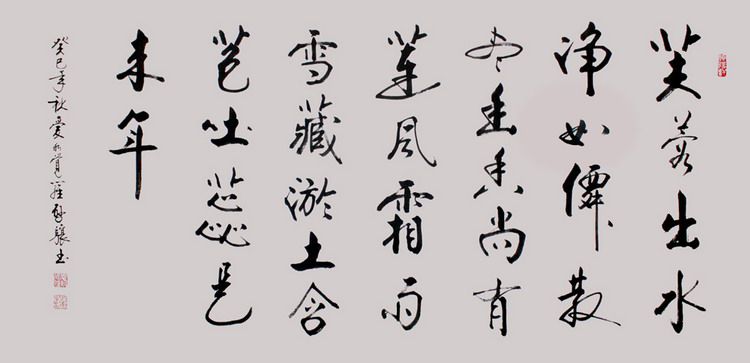 芙蓉出水
净如僊散
尽香尚有
莲风霜雨
雪藏淤土含
苞吐蕊是
来年
癸巳年秋爱新觉罗启骧书